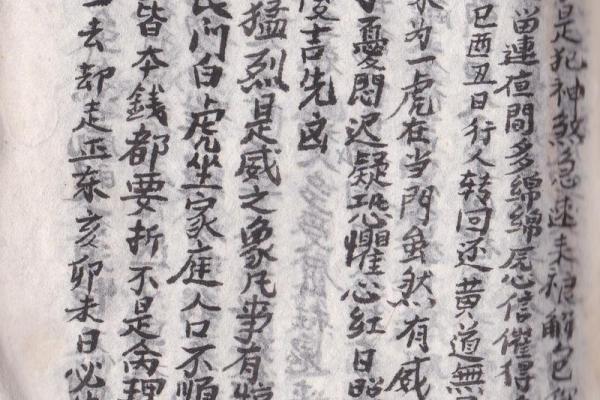 是犯神煞急速未禳解
留連夜間多綿綿虎心信催得
巳酉丑日行人转回还黄道無
为一虎在当門虽然有威
憂悶迟疑恐惧心紅日照
後吉先凶
猛烈是威之象凡事有惊
民间白虎坐家庭人口不順
皆本錢都要折不是禽理
去却走正东亥卯未日必